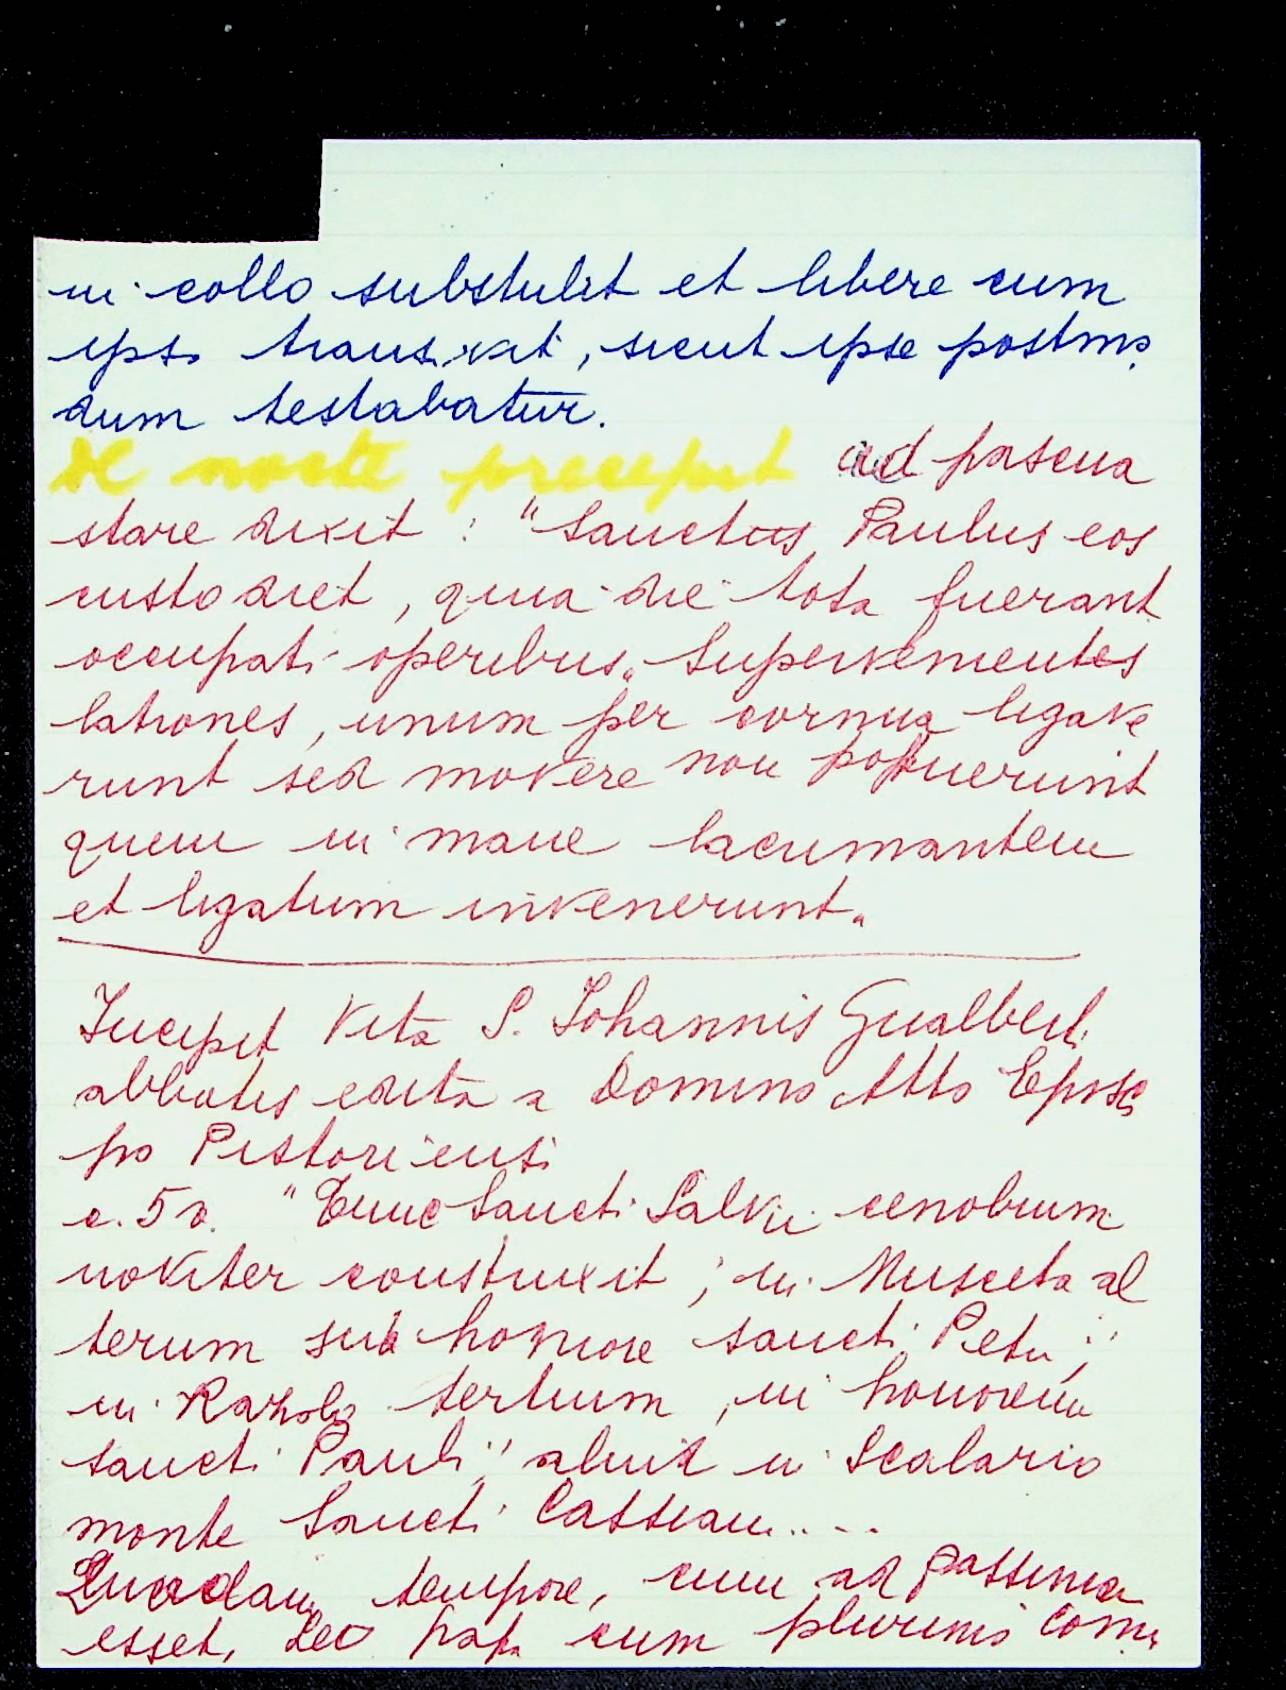 in collo substulit et libere cum
ipso transivit, sicut ipse postmo
dum testabatur.
De nocte precepit ad pascua
stare dixit : "Sanctus Paulus eos
custodiet, quia die tota fuerant
occupati operibus". Supervenientes
latrones, unum per cornua ligave
runt sed movere non potuerunt
quem in mane lacrimantem
et ligatum invenerunt.
Incipit Vita S. Johannis Gualberti
abbatis edita a Domino Atto Episco
po Pistoriensi
c. 5 v. "Tunc Sancti Salvii cenobium
noviter construxit ; in Musceta al
terum sub honore sancti Petri ;
in Razolo tertium, in honorem
sancti Pauli ; aliut in Scalario
monte Sancti Cassiani....
Quodam tempore, cum ad Passinia
esset, Leo Papa cum plurimis comi